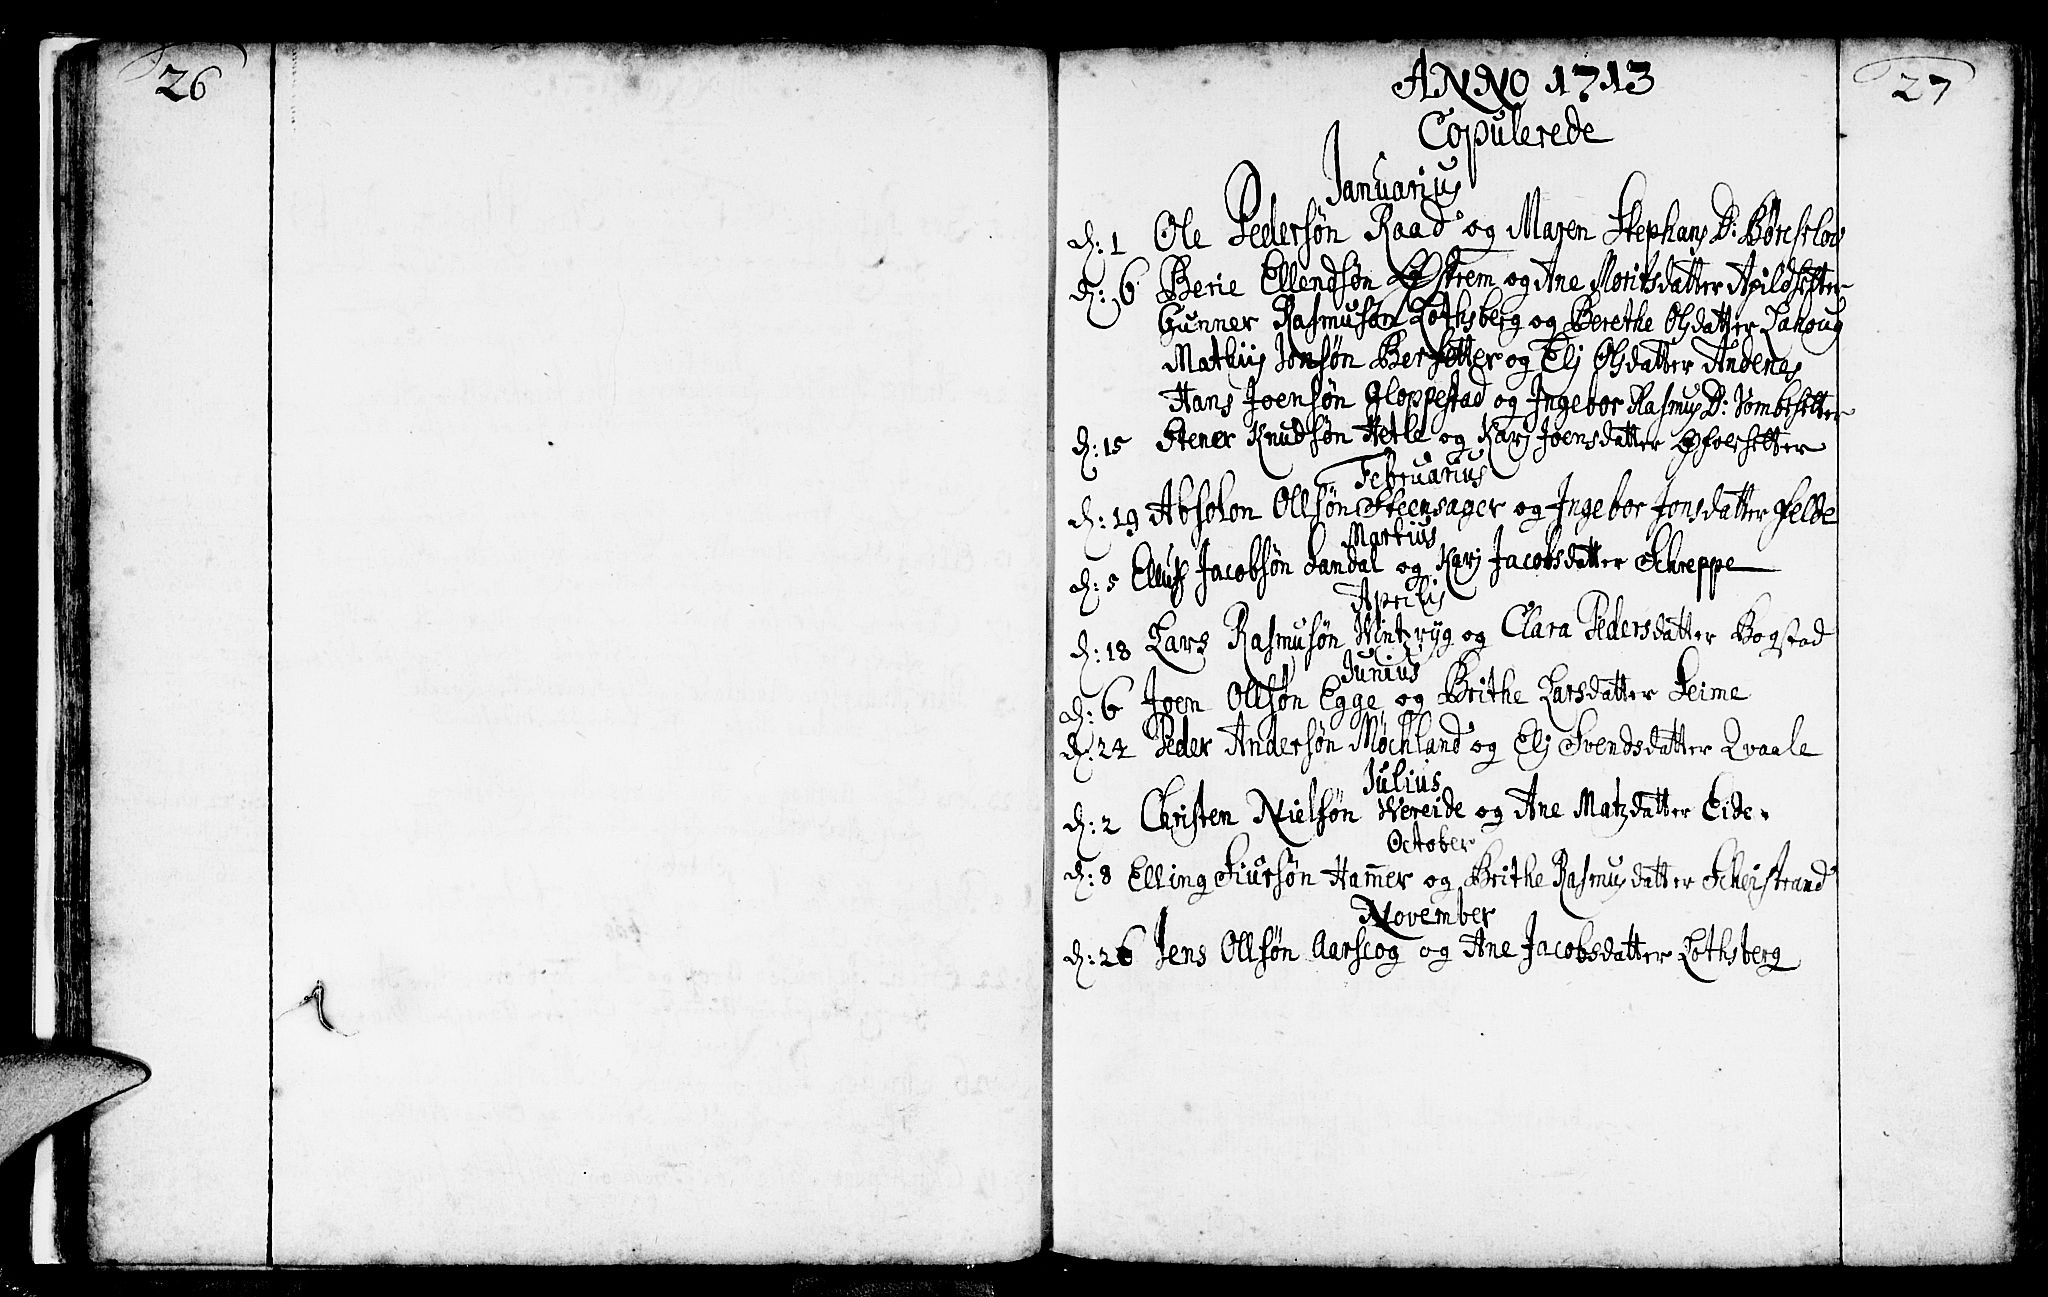 26
27
ANNO 1713
Copulerede
Januarius
d: 1 Ole Pedersøn Raad og Maren Stephans D:
d: 6 Berie Ellendsøn Østrem og Ane Moritsdatter Apildsetter
Gunner Rasmusøn Lothsberg og Berethe Olsdatter
Mathiis Jonsøn Bersetter og Elj Olsdatter Andenes
Hans Joensøn Gloppestad og Ingebor Rasmus D:
d: 15 Stener Knudsøn Hetle og Karj Joensdatter
Februarius
d: 19 Absolon Ollsøn Steensager og Ingebor Jonsdatter Felde
Martius
d: 5 Elluf Jacobsøn Sandal og Karj Jacobsdatter Schreppe
Aprilis
d: 18 Lars Rasmusøn og Clara Pedersdatter Bogstad
Junius
d: 6 Joen Ollsøn Egge og Brithe Larsdatter Seime
d: 24 Peder Andersøn Møchland og Elj Svendsdatter Qvaale
Julius
d: 2 Christen Nielsøn Wereide og Ane Matzdatter Eide.
October
d: 8 Elling Siursøn Ham̅er og Brithe Rasmusdatter Scheistrand
November
d: 26 Jens Ollsøn Aarscog og Ane Jacobsdatter Lothsberg